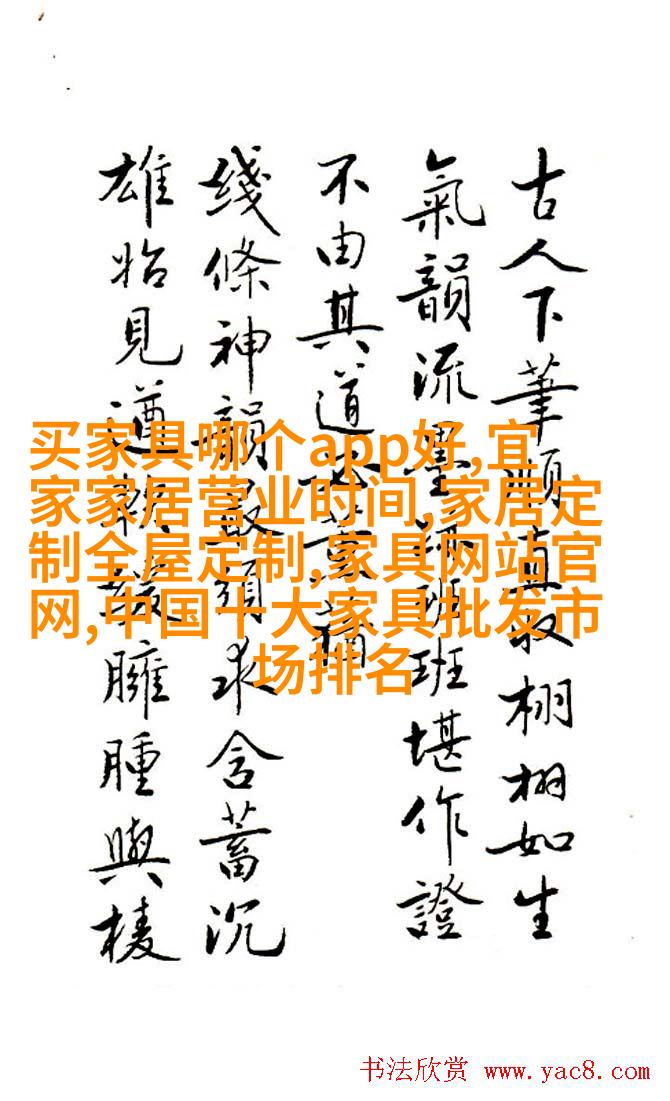 古人下筆直栩栩如生
氣韻流墨班班堪作證
不由其道
綫條神韻求含蓄沉
雄始見遒緩臃腫與棱
买家具哪个app好,宜
家家居营业时间,家居定
制全屋定制,家具网站官
网,中国十大家具批发市
场排名
书法欣赏 www.yac8.com